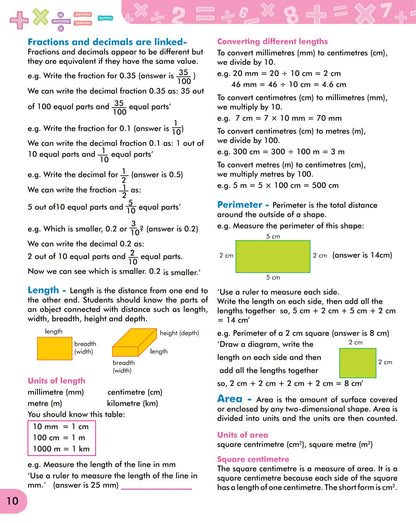 Fractions and decimals are linked-
Fractions and decimals appear to be different but
they are equivalent if they have the same value.
e.g. Write the fraction for 0.35 (answer is 35/100)
We can write the decimal fraction 0.35 as: 35 out
of 100 equal parts and 35/100 equal parts’
e.g. Write the fraction for 0.1 (answer is 1/10)
We can write the decimal fraction 0.1 as: 1 out of
10 equal parts and 1/10 equal parts’
e.g. Write the decimal for 1/2 (answer is 0.5)
We can write the fraction 1/2 as:
5 out of10 equal parts and 5/10 equal parts’
e.g. Which is smaller, 0.2 or 3/10? (answer is 0.2)
We can write the decimal 0.2 as:
2 out of 10 equal parts and 2/10 equal parts.
Now we can see which is smaller. 0.2 is smaller.’
Length - Length is the distance from one end to
the other end. Students should know the parts of
an object connected with distance such as length,
width, breadth, height and depth.
length
breadth
(width)
height (depth)
length
breadth
(width)
Units of length
millimetre (mm) centimetre (cm)
metre (m) kilometre (km)
You should know this table:
10 mm = 1 cm
100 cm = 1 m
1000 m = 1 km
e.g. Measure the length of the line in mm
‘Use a ruler to measure the length of the line in
mm.’ (answer is 25 mm)
10
Converting different lengths
To convert millimetres (mm) to centimetres (cm),
we divide by 10.
e.g. 20 mm = 20 ÷ 10 cm = 2 cm
46 mm = 46 ÷ 10 cm = 4.6 cm
To convert centimetres (cm) to millimetres (mm),
we multiply by 10.
e.g. 7 cm = 7 × 10 mm = 70 mm
To convert centimetres (cm) to metres (m),
we divide by 100.
e.g. 300 cm = 300 ÷ 100 m = 3 m
To convert metres (m) to centimetres (cm),
we multiply metres by 100.
e.g. 5 m = 5 × 100 cm = 500 cm
Perimeter - Perimeter is the total distance
around the outside of a shape.
e.g. Measure the perimeter of this shape:
5 cm
2 cm 2 cm (answer is 14cm)
5 cm
‘Use a ruler to measure each side.
Write the length on each side, then add all the
lengths together so, 5 cm + 2 cm + 5 cm + 2 cm
= 14 cm’
e.g. Perimeter of a 2 cm square (answer is 8 cm)
‘Draw a diagram, write the
length on each side and then
add all the lengths together
2 cm
2 cm
so, 2 cm + 2 cm + 2 cm + 2 cm = 8 cm’
Area - Area is the amount of surface covered
or enclosed by any two-dimensional shape. Area is
divided into units and the units are then counted.
Units of area
square centrimetre (cm²), square metre (m²)
Square centimetre
The square centimetre is a measure of area. It is a
square centimetre because each side of the square
has a length of one centimetre. The short form is cm².